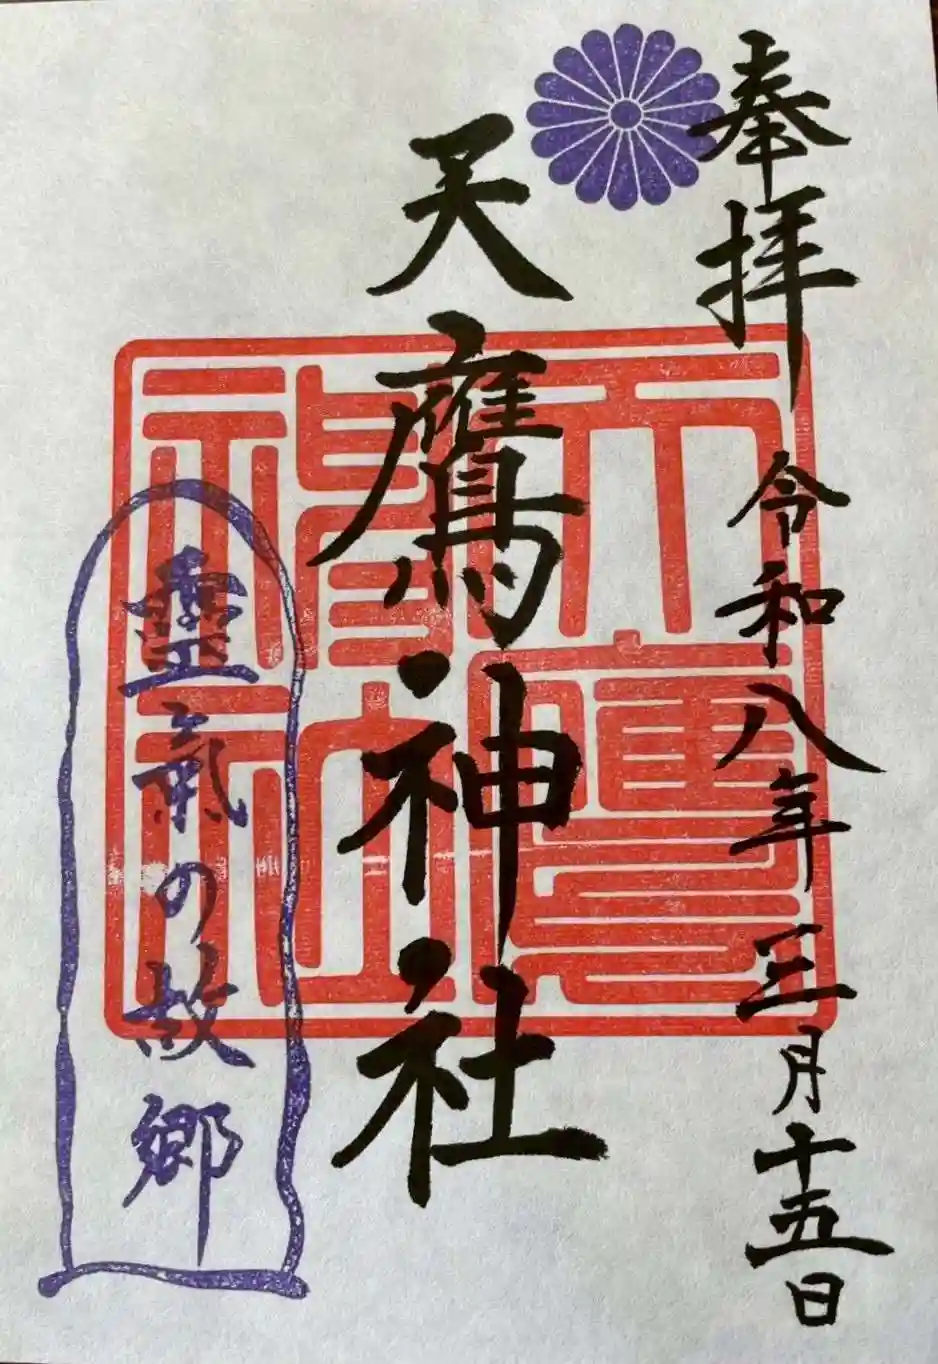 奉拝
令和八年三月十五日
天鷹神社
天鷹
神社
靈氣の故郷